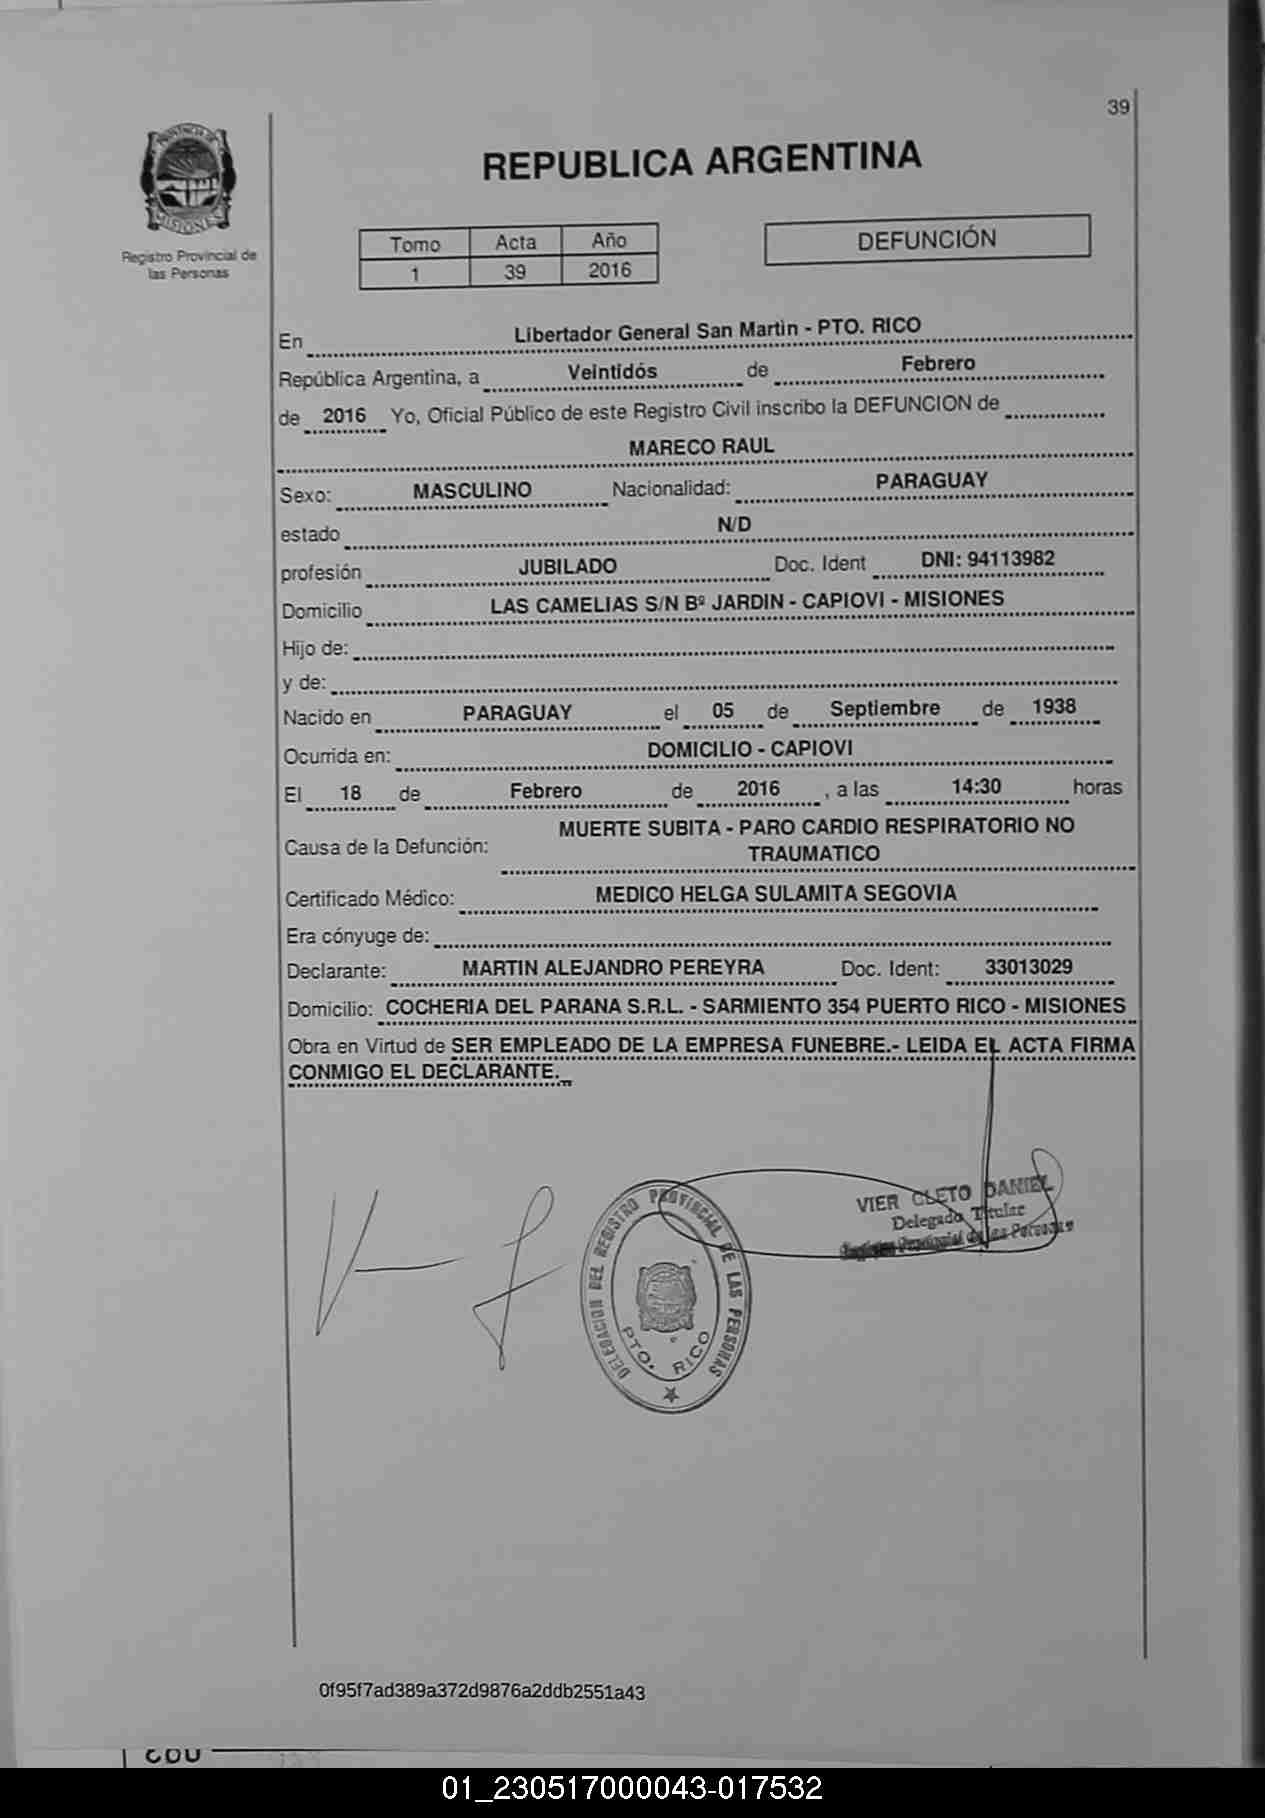 39
PROVINCIA DE
MISIONES
Registro Provincial de
las Personas
REPUBLICA ARGENTINA
Tomo Acta Año
1 39 2016
DEFUNCIÓN
En Libertador General San Martin - PTO. RICO
República Argentina, a Veintidós de Febrero
de 2016 Yo, Oficial Público de este Registro Civil inscribo la DEFUNCION de
MARECO RAUL
Sexo: MASCULINO Nacionalidad: PARAGUAY
estado N/D
profesión JUBILADO Doc. Ident DNI: 94113982
Domicilio LAS CAMELIAS S/N Bº JARDIN - CAPIOVI - MISIONES
Hijo de:
y de:
Nacido en PARAGUAY el 05 de Septiembre de 1938
Ocurrida en: DOMICILIO - CAPIOVI
El 18 de Febrero de 2016 , a las 14:30 horas
Causa de la Defunción: MUERTE SUBITA - PARO CARDIO RESPIRATORIO NO
TRAUMATICO
Certificado Médico: MEDICO HELGA SULAMITA SEGOVIA
Era cónyuge de:
Declarante: MARTIN ALEJANDRO PEREYRA Doc. Ident: 33013029
Domicilio: COCHERIA DEL PARANA S.R.L. - SARMIENTO 354 PUERTO RICO - MISIONES
Obra en Virtud de SER EMPLEADO DE LA EMPRESA FUNEBRE.- LEIDA EL ACTA FIRMA
CONMIGO EL DECLARANTE.
VIER CLETO DANIEL
Delegado Titular
Registro Provincial de las Personas
DELEGACION DEL REGISTRO PROVINCIAL DE LAS PERSONAS
PTO. RICO
0f95f7ad389a372d9876a2ddb2551a43
01_230517000043-017532